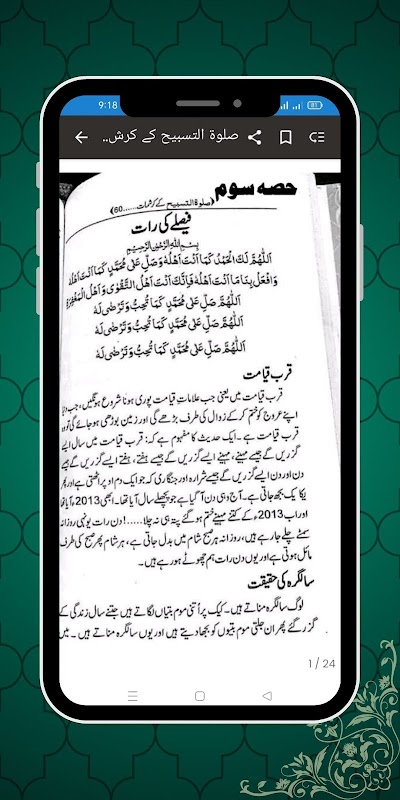 9:18
81
صلوٰۃ التسبیح کے کرش..
حصہ سوم
(صلوٰۃ التسبیح کے کرشمات......60)
فیصلے کی رات
بِسْمِ اللّٰهِ الرَّحْمٰنِ الرَّحِيْمِ
اَللّٰهُمَّ لَكَ الْحَمْدُ كَمَا اَنْتَ اَهْلُهٗ وَصَلِّ عَلٰى مُحَمَّدٍ كَمَا اَنْتَ اَهْلُهٗ
وَافْعَلْ بِنَا مَا اَنْتَ اَهْلُهٗ فَاِنَّكَ اَنْتَ اَهْلُ التَّقْوٰى وَ اَهْلُ الْمَغْفِرَةِ
اَللّٰهُمَّ صَلِّ عَلٰى مُحَمَّدٍ كَمَا تُحِبُّ وَتَرْضٰى لَهٗ
اَللّٰهُمَّ صَلِّ عَلٰى مُحَمَّدٍ كَمَا تُحِبُّ وَتَرْضٰى لَهٗ
اَللّٰهُمَّ صَلِّ عَلٰى مُحَمَّدٍ كَمَا تُحِبُّ وَتَرْضٰى لَهٗ
قرب قیامت
قرب قیامت میں یعنی جب علامات قیامت پوری ہونا شروع ہونگیں، جب
اپنے عروج کو ختم کر کے زوال کی طرف بڑھے گی اور زمین بوڑھی ہو جائے گی تو وہ
قرب قیامت ہے۔ ایک حدیث کا مفہوم ہے کہ: قرب قیامت میں سال ایسے
گزریں گے جیسے مہینے، مہینے ایسے گزریں گے جیسے ہفتے، ہفتے ایسے گزریں گے جیسے
دن اور دن ایسے گزریں گے جیسے شرارہ اور چنگاری کہ جو ایک دم اوپر اٹھتی ہے اور پھر
یکا یک بجھ جاتی ہے۔ آج ہی دن آ گیا ہے جو پچھلے سال آیا تھا۔ ابھی 2013ء آیا تھا
اور اب 2013ء کے کتنے مہینے ختم ہو گئے پتہ ہی نہ چلا.....! دن رات یونہی روزانہ
سمٹے چلے جا رہے ہیں، روزانہ ہر صبح شام میں بدل جاتی ہے، ہر شام پھر صبح کی طرف
مائل ہوتی ہے اور یوں دن رات ہم چھوٹے ہو رہے ہیں۔
سالگرہ کی حقیقت
لوگ سالگرہ مناتے ہیں۔ کیک پر اتنی موم بتیاں لگاتے ہیں جتنے سال زندگی کے
گزر گئے پھر ان جلتی موم بتیوں کو بجھا دیتے ہیں اور یوں سالگرہ مناتے ہیں۔ میں
1 / 24